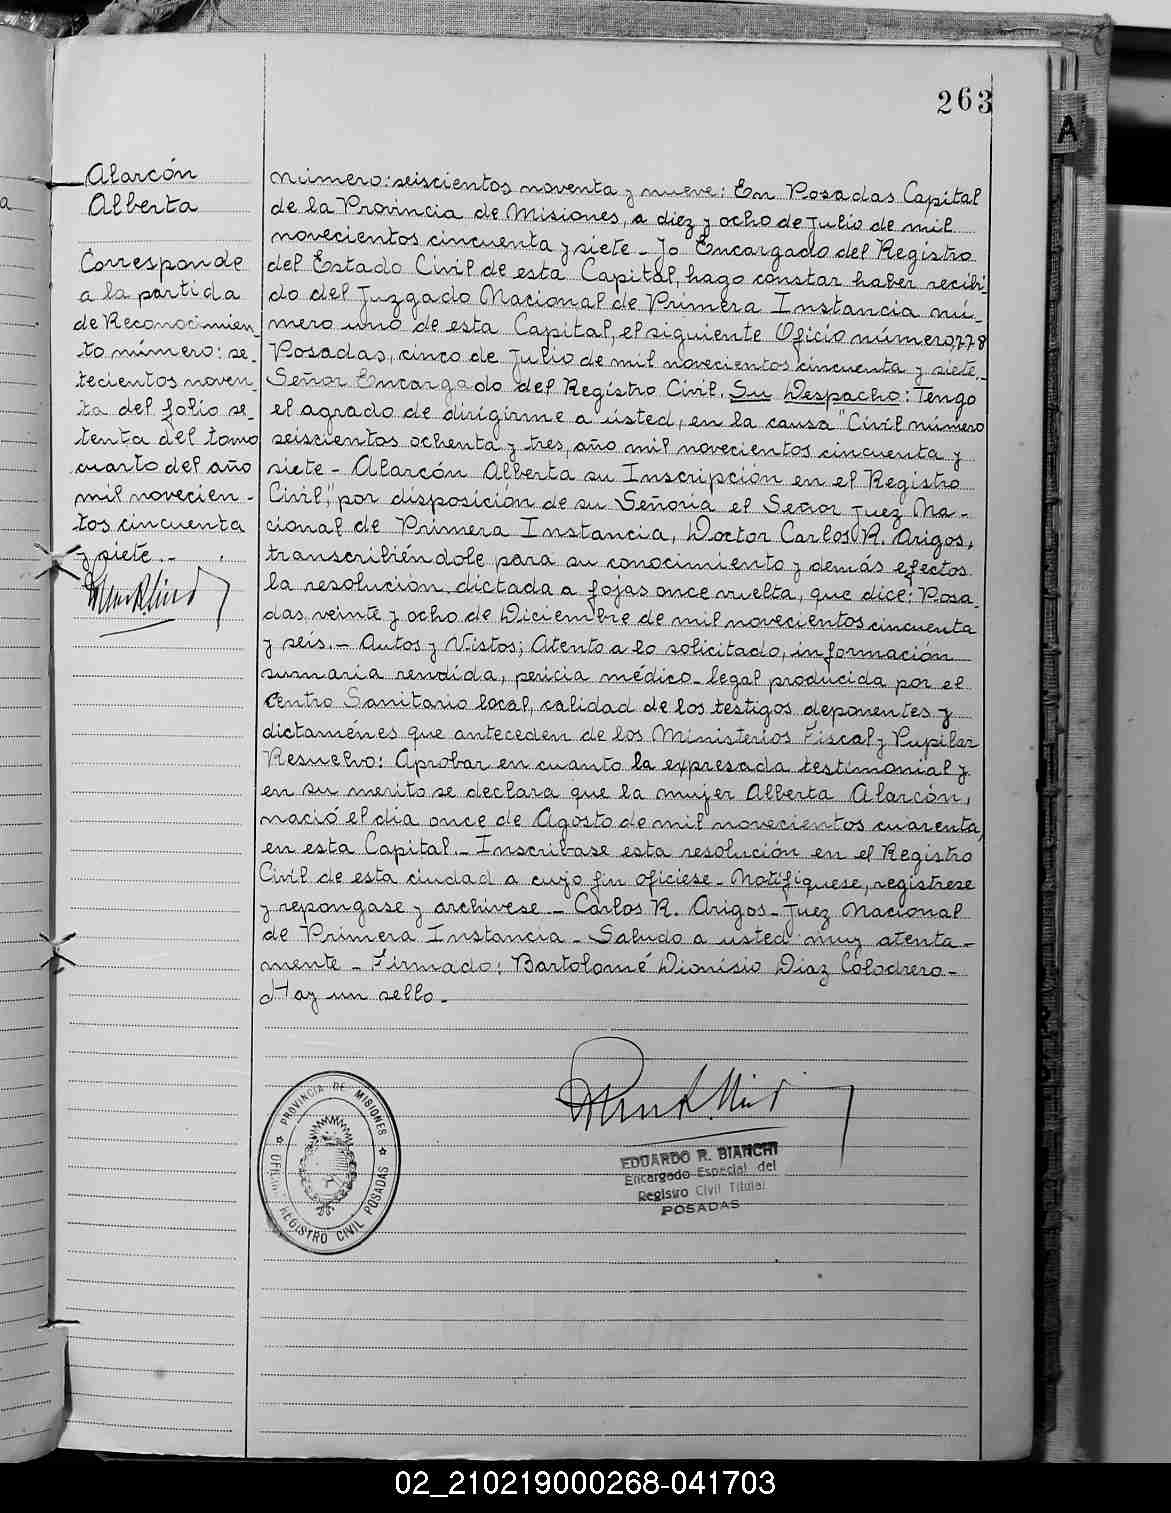 263
A
Alarcón
Alberta
Corresponde
a la partida
de Reconocimien_
to número: se_
tecientos noven_
ta del folio se_
tenta del tomo
cuarto del año
mil novecien-
tos cincuenta
y siete.-
número: seiscientos noventa y nueve: En Posadas Capital
de la Provincia de Misiones, a diez y ocho de Julio de mil
novecientos cincuenta y siete_ Yo Encargado del Registro
del Estado Civil de esta Capital, hago constar haber recibi-
do del Juzgado Nacional de Primera Instancia nú-
mero uno de esta Capital, el siguiente Oficio número 778
Posadas, cinco de Julio de mil novecientos cincuenta y siete.-
Señor Encargado del Registro Civil. Su Despacho: Tengo
el agrado de dirigirme a usted, en la causa "Civil número
seiscientos ochenta y tres, año mil novecientos cincuenta y
siete - Alarcón Alberta su Inscripción en el Registro
Civil," por disposición de su Señoría el Señor Juez Na-
cional de Primera Instancia, Doctor Carlos R. Arigos,
transcribiéndole para su conocimiento y demás efectos
la resolución, dictada a fojas once vuelta, que dice: Posa_
das, veinte y ocho de Diciembre de mil novecientos cincuenta
y seis.- Autos y Vistos; Atento a lo solicitado, información
sumaria rendida, pericia médico-legal producida por el
Centro Sanitario local, calidad de los testigos deponentes y
dictamenes que anteceden de los Ministerios Fiscal y Pupilar
Resuelvo: Aprobar en cuanto la expresada testimonial y
en su merito se declara que la mujer Alberta Alarcón,
nació el día once de Agosto de mil novecientos cuarenta,
en esta Capital._ Inscribase esta resolución en el Registro
Civil de esta ciudad a cuyo fin oficiese_ Notifíquese, registrese
y repongase y archivese_ Carlos R. Arigos_ Juez Nacional
de Primera Instancia_ Saludo a usted muy atenta-
mente_ Firmado: Bartolomé Dionisio Diaz Colodrero-
Hay un sello_
PROVINCIA DE MISIONES
OFICINA REGISTRO CIVIL POSADAS
EDUARDO R. BIANCHI
Encargado Especial del
Registro Civil Titular
POSADAS
02_210219000268-041703